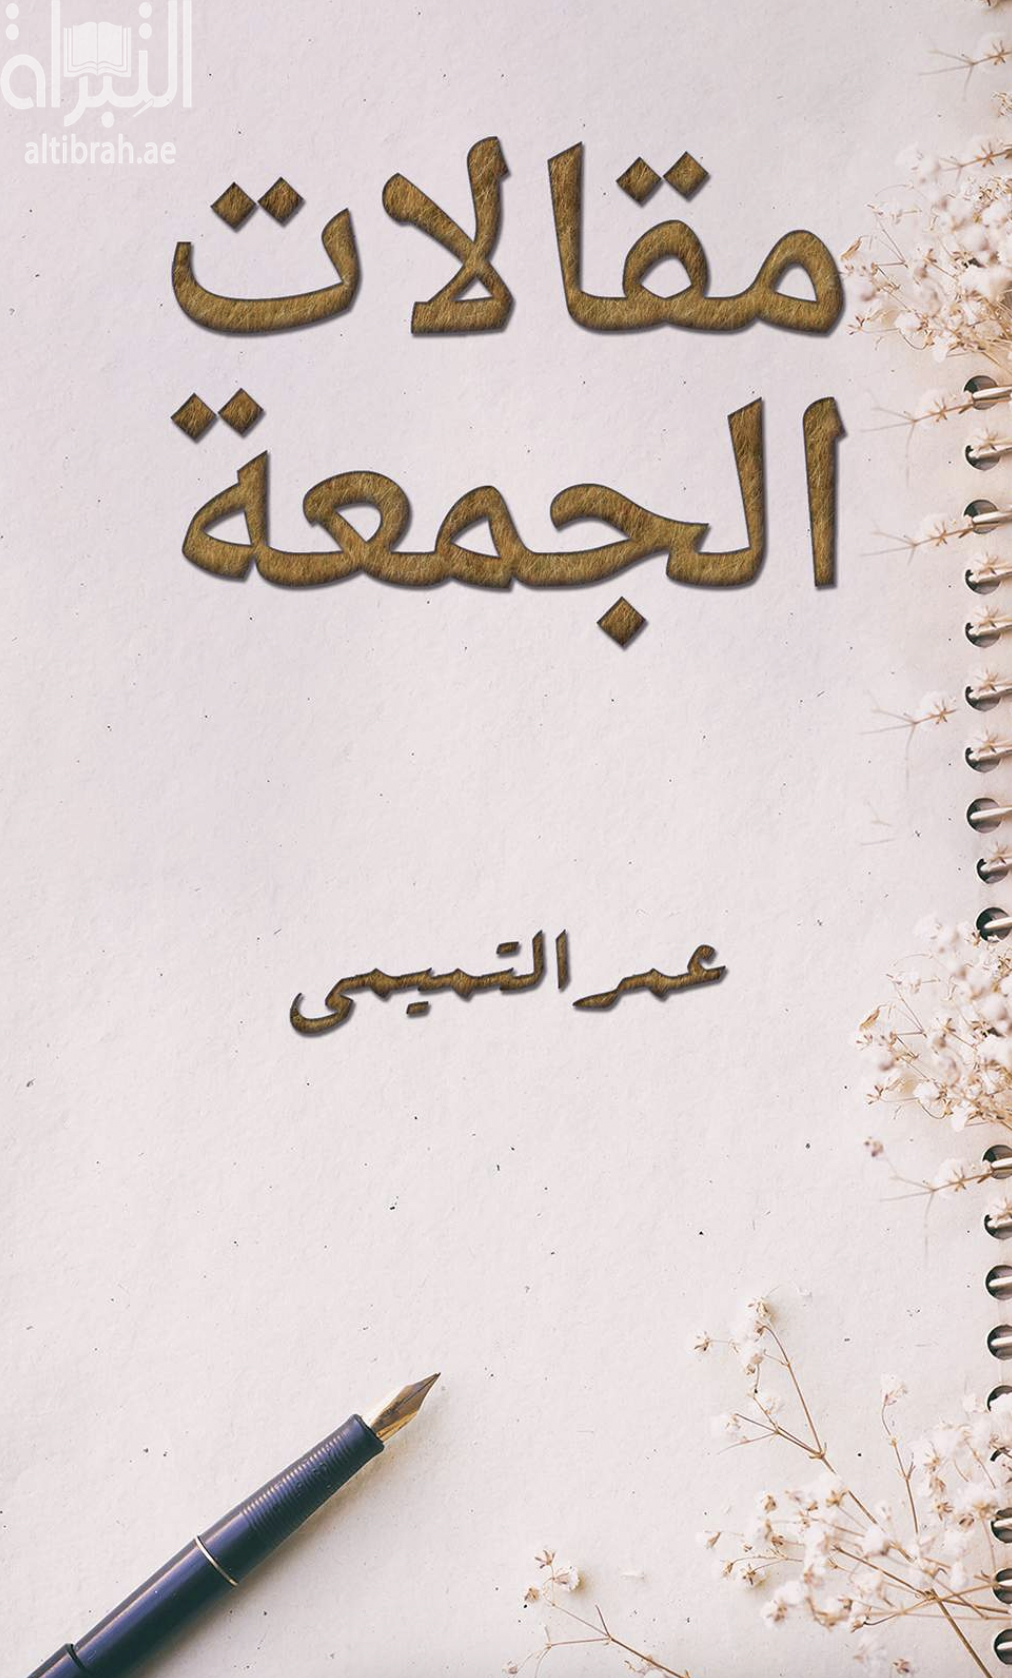 التبراة
altibrah.ae
مقالات
الجمعة
عمر التميمى